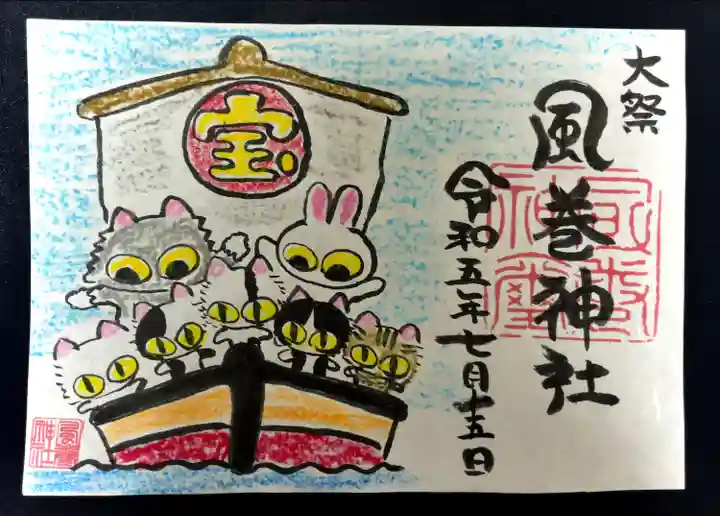 大祭
風巻神社
令和五年七月十五日
宝